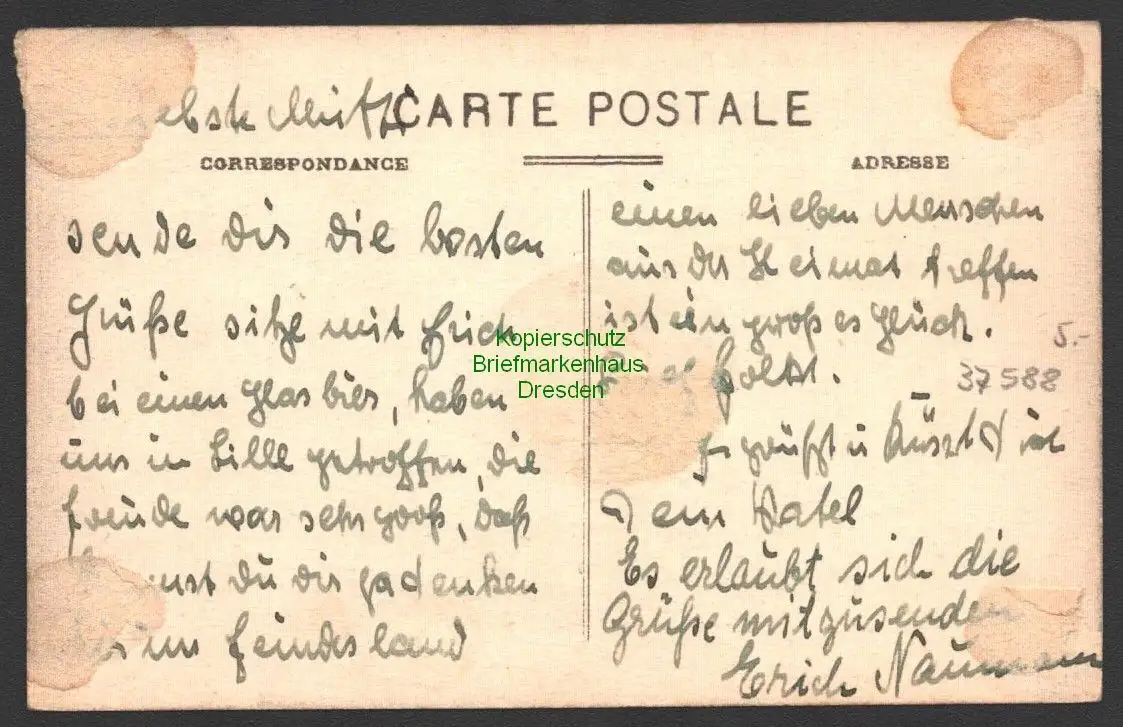 ebste Mutti
CARTE POSTALE
CORRESPONDANCE
ADRESSE
sende dir die besten
Grüße sitze mit Erich
bei einen Glas bier, haben
uns in Lille getroffen, die
freude war sehr groß, daß
nst du dir gedenken
im feindesland
einen lieben Menschen
aus der Heimat treffen
ist ein großes Glück.
Gold.
5.-
37588
gegrüßt u
dein Vatel
Es erlaubt sich die
Grüße mitzusenden
Erich Naumann
Kopierschutz
Briefmarkenhaus
Dresden